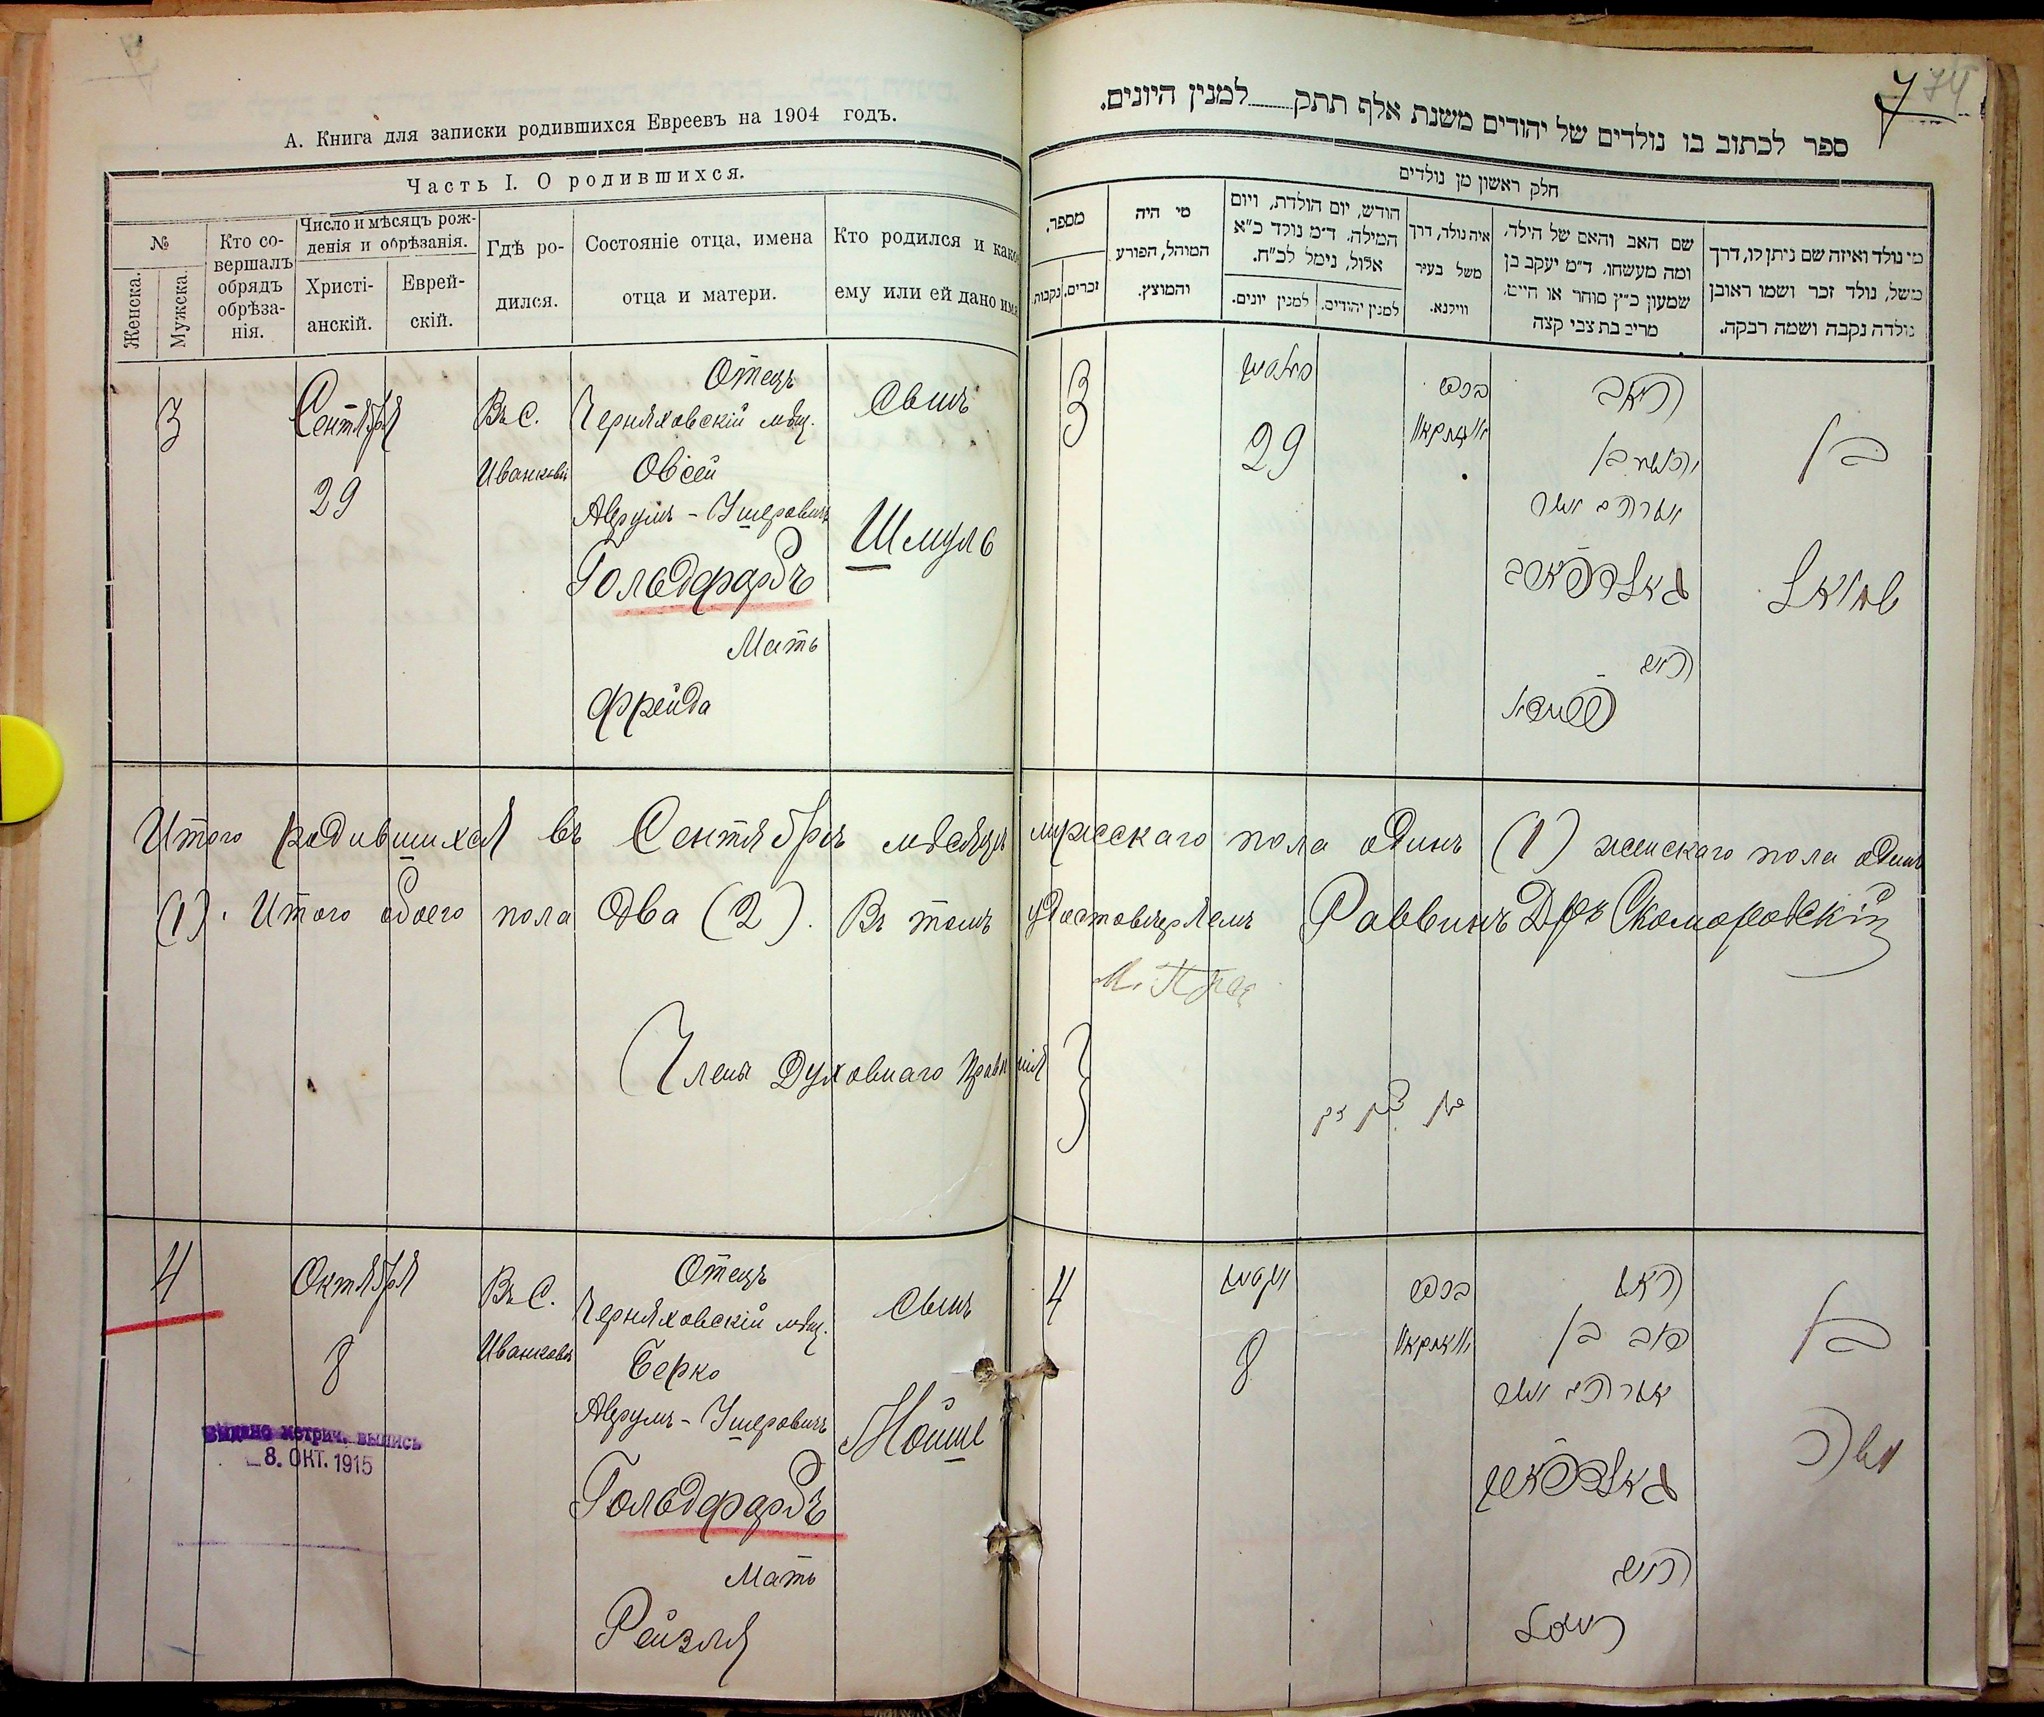 А. Книга для записки родившихся Евреевъ на 1904 годъ.
Часть I. О родившихся.
№
Женска.
Мужска.
Кто со-
вершалъ
обрядъ
обрѣза-
нія.
Число и мѣсяцъ рож-
денія и обрѣзанія.
Христі-
анскій.
Еврей-
скій.
Гдѣ ро-
дился.
Состояніе отца, имена
отца и матери.
Кто родился и како
ему или ей дано имя
3
Сентября
29
Въ С.
Иванковѣ
Отецъ
Черняховскій мѣщ.
Овсей
Аврумъ-Ушеровичъ
Гольдфарбъ
Мать
Фрейда
Сынъ
Шмуль
Итого родившихся въ Сентябрѣ мѣсяцѣ мужскаго пола одинъ (1) женскаго пола одинъ
(1). Итого обоего пола два (2). Въ томъ удостовѣряемъ Раввинъ Д-ръ Скомаровскій
Члены Духовнаго Правленія
4
Октября
8
Въ С.
Иванковѣ
Отецъ
Черняховскій мѣщ.
Берко
Аврумъ-Ушеровичъ
Гольдфарбъ
Мать
Рейзля
Сынъ
Мойше
ВЫДАНО метрич. выпись
8. ОКТ. 1915
7 74
ספר לכתוב בו נולדים של יהודים משנת אלף תתק למנין היונים.
חלק ראשון מן נולדים
מספר.
זכרים.
נקבות.
מי היה
המוהל, הפורע
והמוצץ.
חודש, יום הולדת, ויום
המילה. ד״מ נולד כ״א
אלול, נימל לכ״ח.
למנין יונים.
למנין יהודים.
איה נולד, דרך
משל בעיר
ווילנא.
שם האב והאם של הילד,
ומה מעשהו. ד״מ יעקב בן
שמעון כ״ץ סוחר או חייט,
מרים בת צבי קצה
מי נולד ואיזה שם ניתן לו, דרך
משל, נולד זכר ושמו ראובן
נולדה נקבה ושמה רבקה.
3
29
בכפר
האב
בן
גאלדפארב
האם
בן
שמואל
4
8
בכפר
האב
בן
גאלדפארב
האם
רייזל
בן
משה